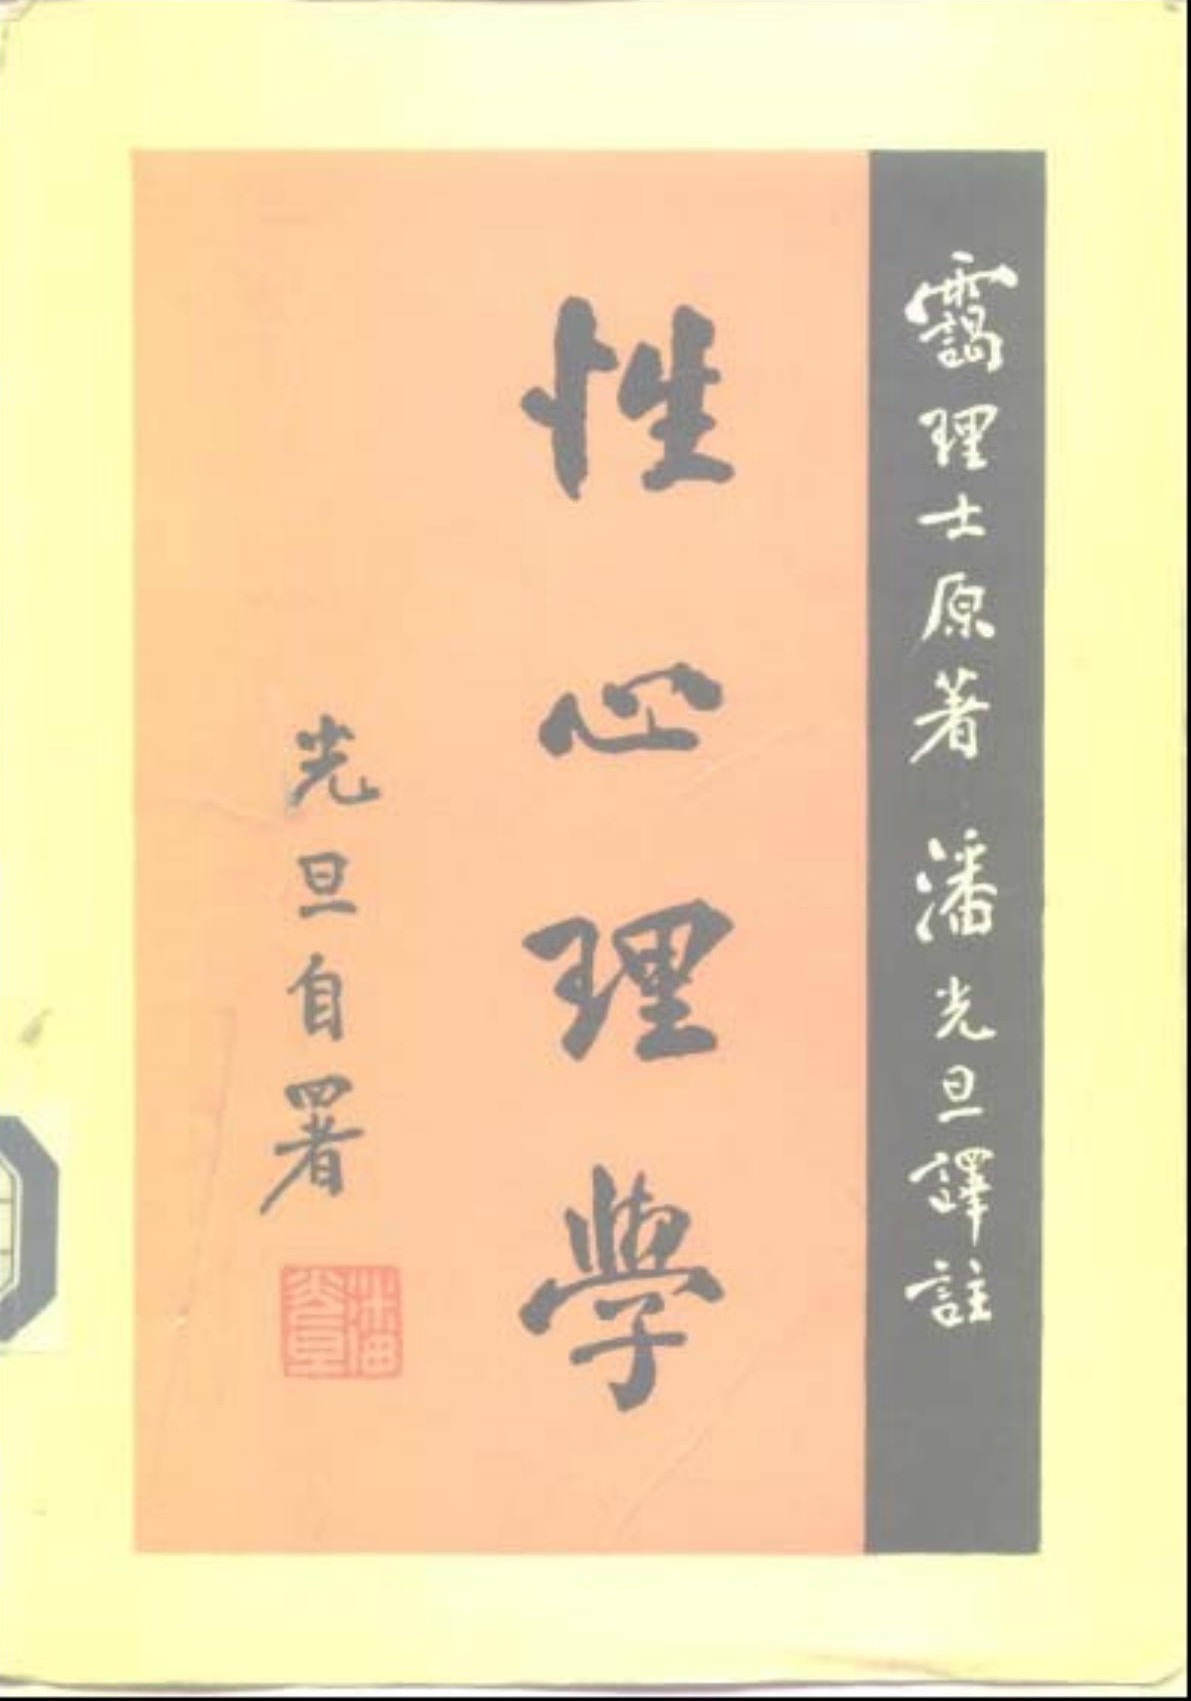 靄理士原著 潘光旦譯註
性心理學
光旦自署